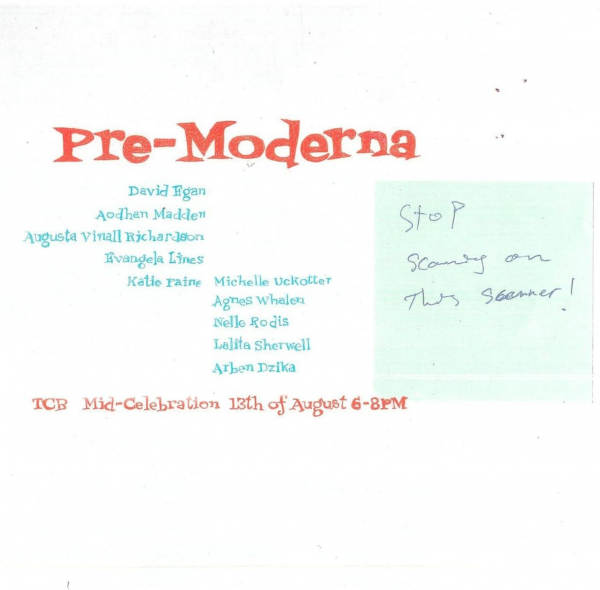 Pre-Moderna
David Egan
Aodhan Madden
Augusta Vinall Richardson
Evangela Lines
Katie Paine
Michelle Uckotter
Agnes Whalen
Nelle Rodis
Lalita Sherwell
Arben Dzika
Stop
Scanning on
This Scanner!
TCB Mid-Celebration 13th of August 6-8PM